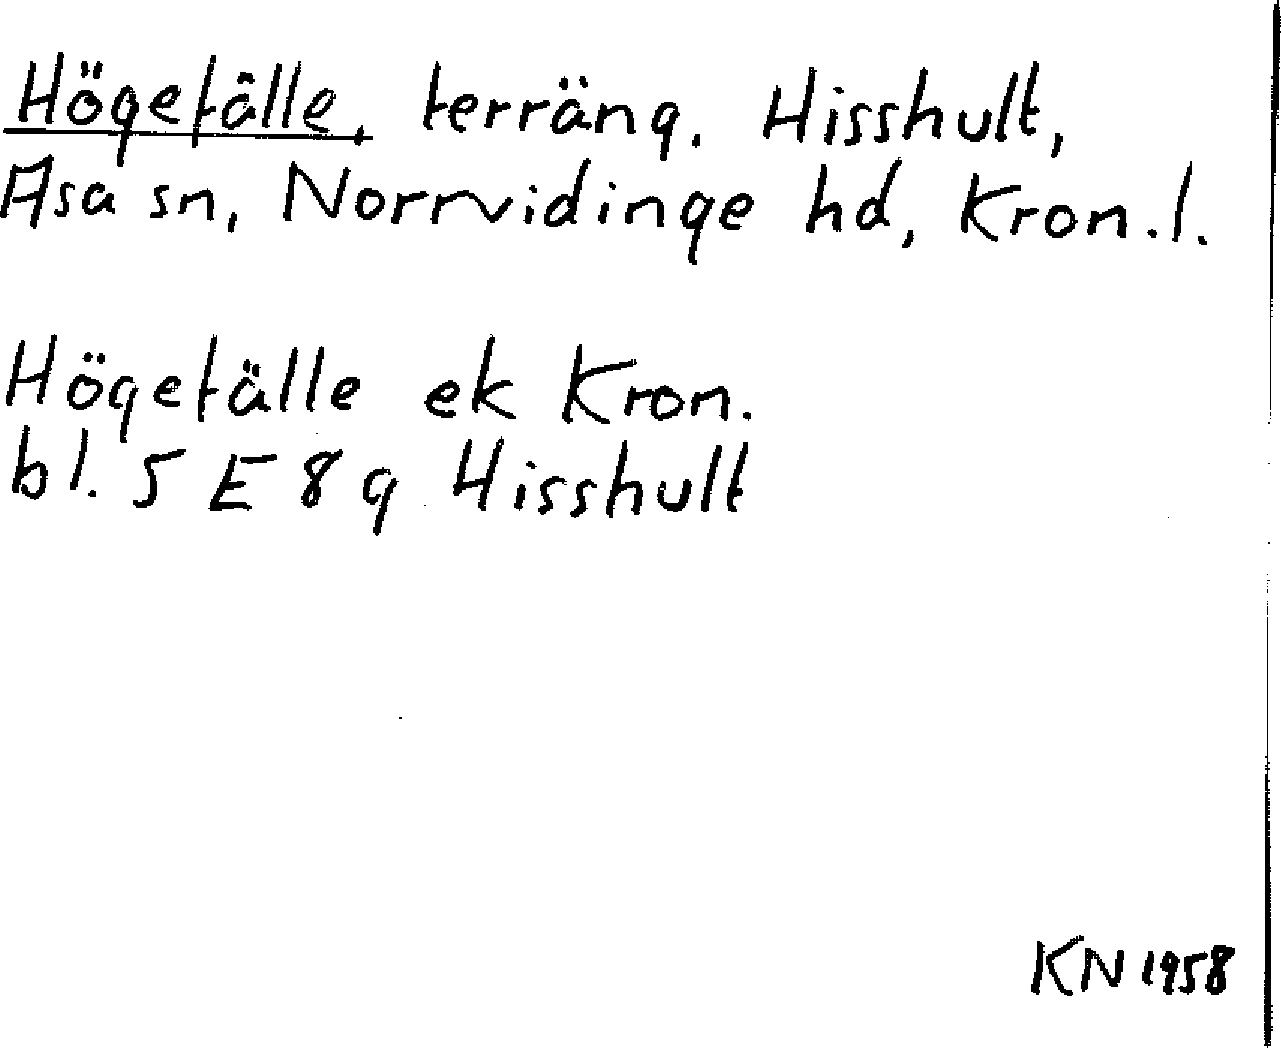 Högefälle, terräng. Hisshult,
Asa sn, Norrvidinge hd, Kron.l.
Högefälle ek Kron.
bl. 5 E 8 g Hisshult
KN 1958